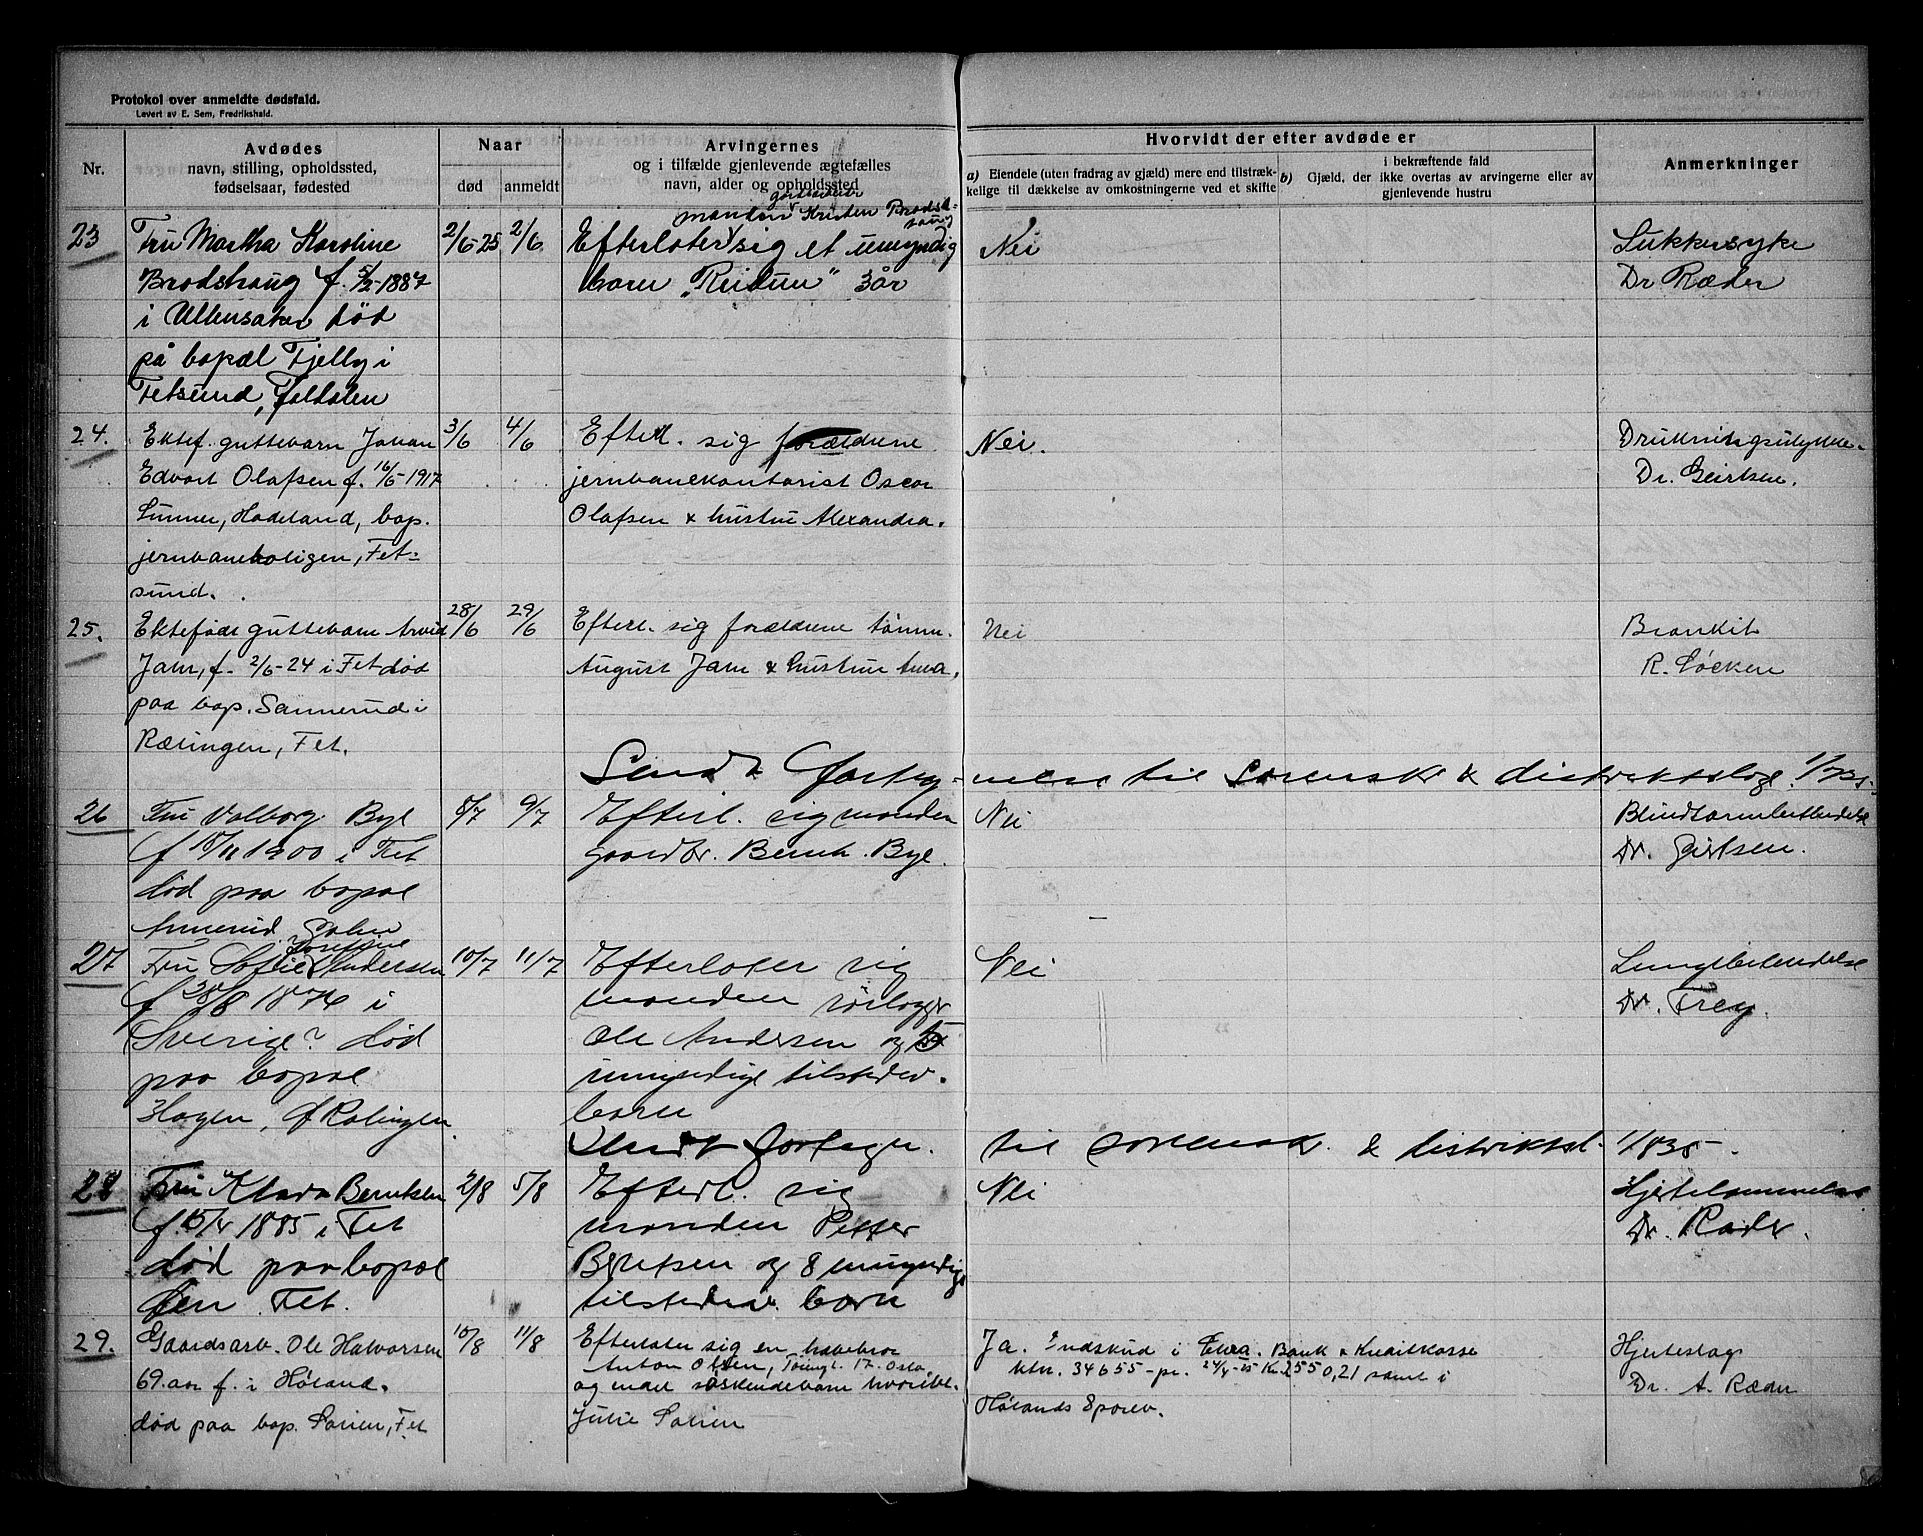 Protokol over anmeldte dødsfald.
Levert av E. Sem, Fredrikshald.
Nr.
Avdødes
navn, stilling, opholdssted,
fødselsaar, fødested
Naar
død anmeldt
Arvingernes
og i tilfælde gjenlevende ægtefælles
navn, alder og opholdssted
Hvorvidt der efter avdøde er
a) Eiendele (uten fradrag av gjæld) mere end tilstræk-
kelige til dækkelse av omkostningerne ved et skifte
b) Gjæld, der i bekræftende fald
ikke overtas av arvingerne eller av
gjenlevende hustru
Anmerkninger
23
Fru Martha Karoline
Brodshaug f. 5/2-1887
i Ullensaker død
på bopæl Fjelly i
Fetsund, Faldalen
2/6-25 2/6.
manden Kristen Brodshaug
Efterlater sig et umyndig
barn „Reidun” 3 år
Nei
Sukkersyke
Dr Ræder
24.
Ektef. guttebarn Johan
Edvart Olafsen f. 16/5-1917
Lunner, Hadeland, bop.
jernbaneboligen, Fet-
sund.
3/6 4/6
Efterl. sig forældrene
jernbanekontorist Oscar
Olafsen & hustru Alexandra.
Nei.
Drukningsulykke.
Dr. Geirtsen.
25.
Ektefødt guttebarn Arvid
Jahr, f. 2/6-24 i Fet død
paa bop. Sannerud i
Rælingen, Fet.
28/6 29/6
Efterl. sig forældrene tømm.
August Jahr & hustru Anna.
Nei
Bronkit
R. Løcken
Sendt fortegnelse til Sorensk & distriktslæge 1/7 25.
26
Fru Valborg Bye
f 18/11 1900 i Fet
død paa bopæl
8/7 9/7
Efterl. sig manden
gaardbr. Bernh. Bye.
Nei
Blindtarmbetændelse
Dr. Geirtsen.
27
Fru Sofie Josefine Andersen
f 28/8 1876 i
Sverige? død
paa bopæl
Hagen, Rælingen.
10/7 11/7
Efterlater sig
manden
Ole Andersen og 5
umyndige tilstedev.
barn
Nei
Lungebetændelse
Dr. Frey.
Sendt fortegn. til sorensk. & distriktsl. 1/8 25-
28
Fru Klara Berntsen
f. 15/4 1885 i Fet
død paa bopæl
Øen Fet.
2/8 5/8
Efterl. sig
manden Petter
Berntsen og 8 umyndige
tilstedev. barn
Nei
Hjertelammelse
Dr. Ræder.
29.
Gaardsarb. Ole Halvorsen
69 aar f. i Høland.
død paa bop. Lorien, Fet
10/8 11/8
Efterlater sig en halvbror
Anton Olsen, 17. Oslo,
og endel søskendebarn hvoribl.
Julie Lorien
Ja. Indskud i Bank & Kreditkasse
ktnr. 34655 - pr. 24/4-25 Kr. 2550,21 samt i
Hølands Spareb.
Hjerteslag
Dr. A. Ræder